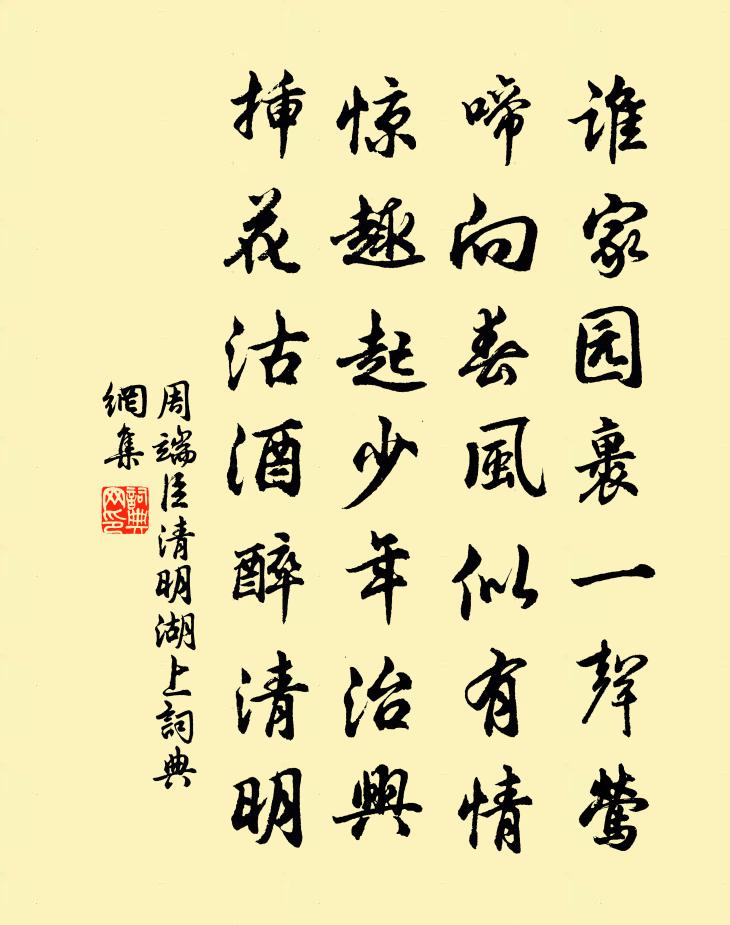 谁家园裹一聲鶯
啼向春風似有情
惊趣起少年治興
挿花沽酒醉清明
周端臣清明湖上詞典
網集
詞典
网印